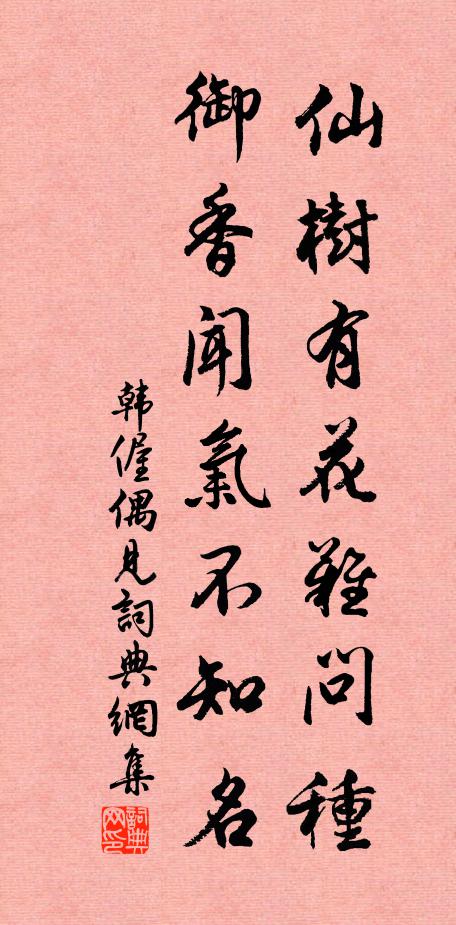 仙樹有花難問種
御香聞氣不知名
韩偓偶見詞典網集
詞典
网印